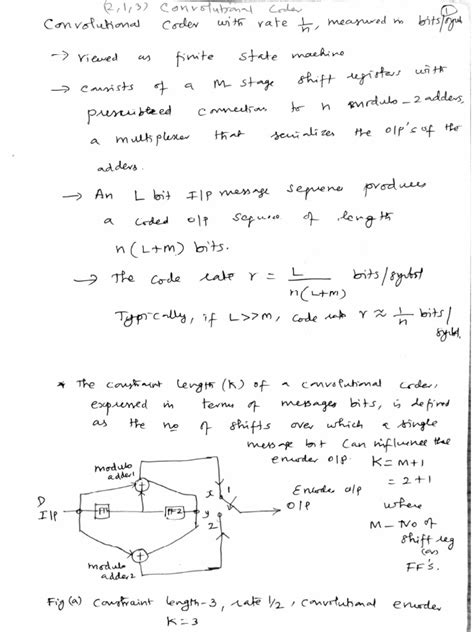 (2,1,3) Convolutional Coder
Convolutional Coder with rate 1/n, measured in bits/
1
-> viewed as finite state machine
-> consists of a M stage shift registers with
prescribed connection to n modulo-2 adders,
a multiplexer that serializes the o/p's of the
adders.
-> An L bit I/p message sequence produces
a coded o/p sequence of length
n(L+m) bits.
-> The code rate r = L / n(L+m) bits/symbol
Typically, if L>>m, code rate r ≈ 1/n bits/
symbol.
* The constraint length (K) of a convolutional coder,
expressed in terms of messages bits, is defined
as the no of shifts over which a single
message bit can influence the
encoder o/p. K=M+1
= 2+1
where
M - No of
shift reg
(or)
FF's.
modulo
adder1
D
I/P
FF1
FF2
x
1
y
2
Encoder o/p
O/P
modulo
adder2
Fig (a) Constraint length-3, rate 1/2, convolutional encoder
K=3